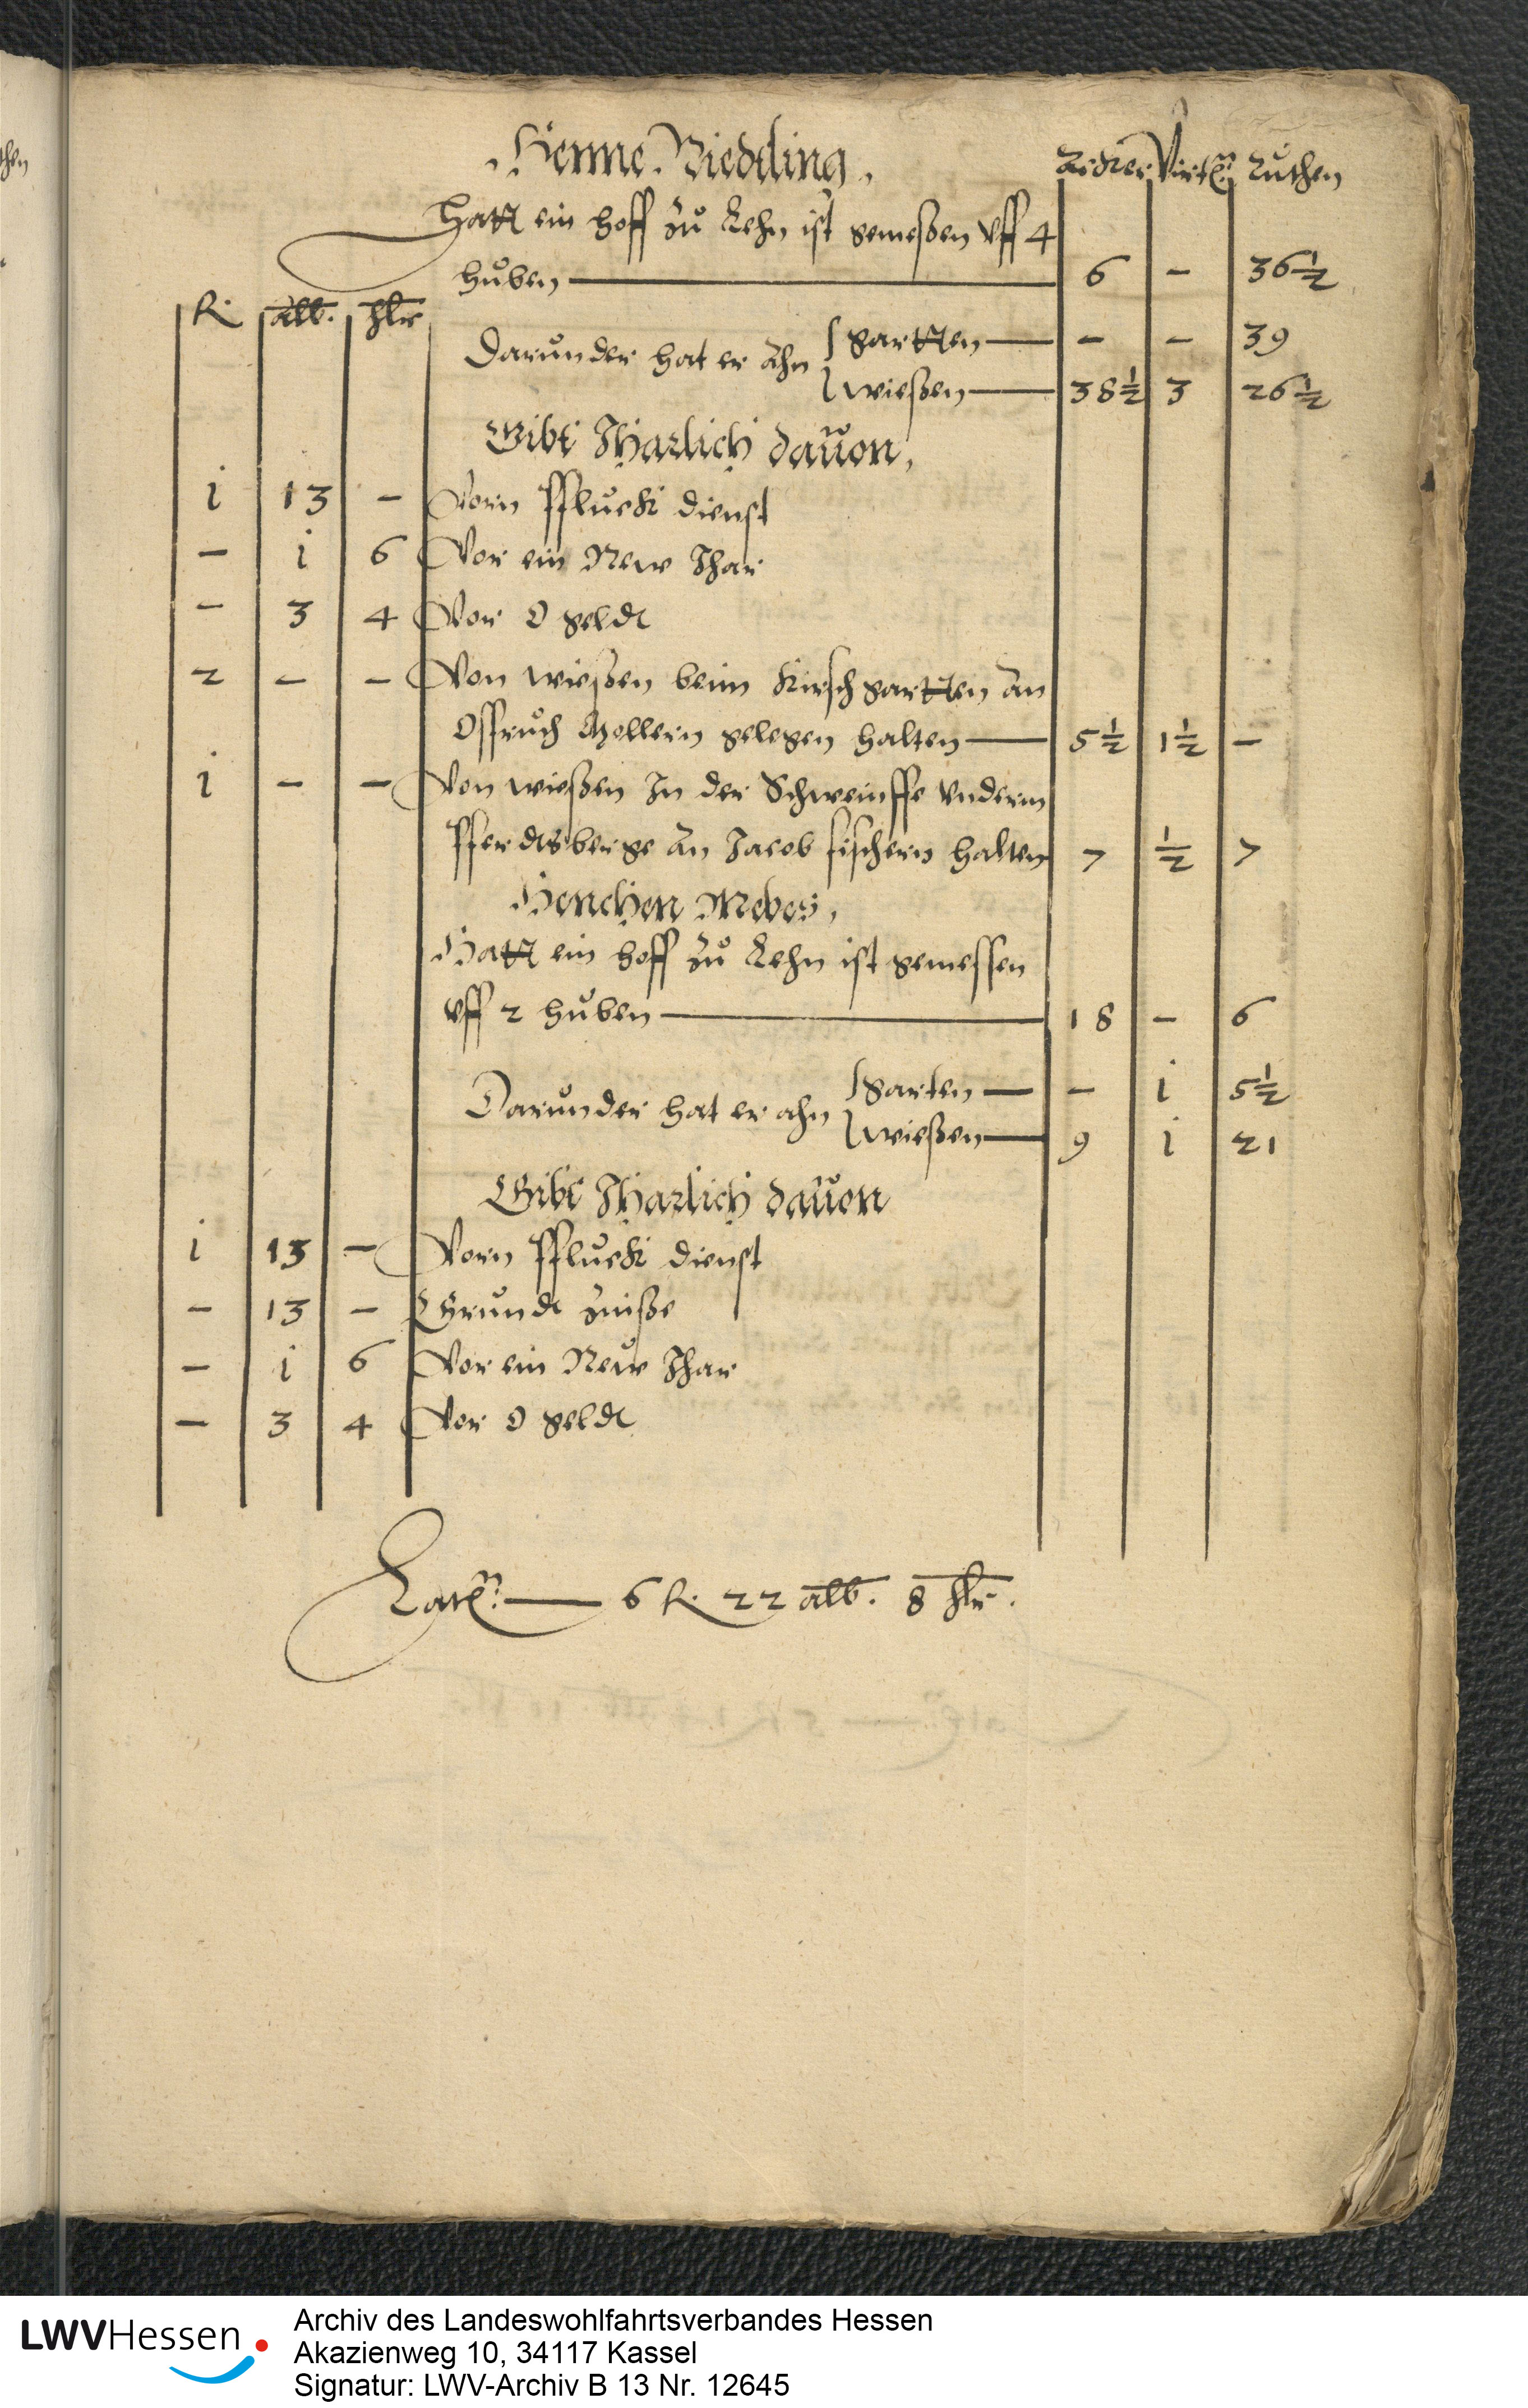 Henne Riedding, Acker Virtel Ruthen
Hatt ein hoff zu Lehn ist gemeßen vff 4
huben — 6 – 36½
R. alb. hlr
Darunder hat er ahn gartten — – – 39
wießen — 38½ 3 26½
Gibt Jharlich dauon,
i 13 – Vorn Pfluck dienst
– i 6 Vor ein New Jhar
– 3 4 Vor O geldt
2 – – Von wießen beim Kirschgartten an
gelegen halten — 5½ 1½ –
i – – Von wießen Jn der Schweinffe vnderm
Pferdtsberge an Jacob fischern halten 7 ½ 7
Henchen Mebes,
Hatt ein hoff zu Lehn ist gemessen
vff 2 huben — 18 – 6
Darunder hat er ahn garten — – i 5½
wießen — 9 i 21
Gibt Jharlich dauon
i 13 – Vorn Pfluck dienst
– 13 – Grundt zinße
– i 6 Vor ein New Jhar
– 3 4 Vor O geldt
Lat. — 6 R. 22 alb. 8 hlr.
LWVHessen
Archiv des Landeswohlfahrtsverbandes Hessen
Akazienweg 10, 34117 Kassel
Signatur: LWV-Archiv B 13 Nr. 12645